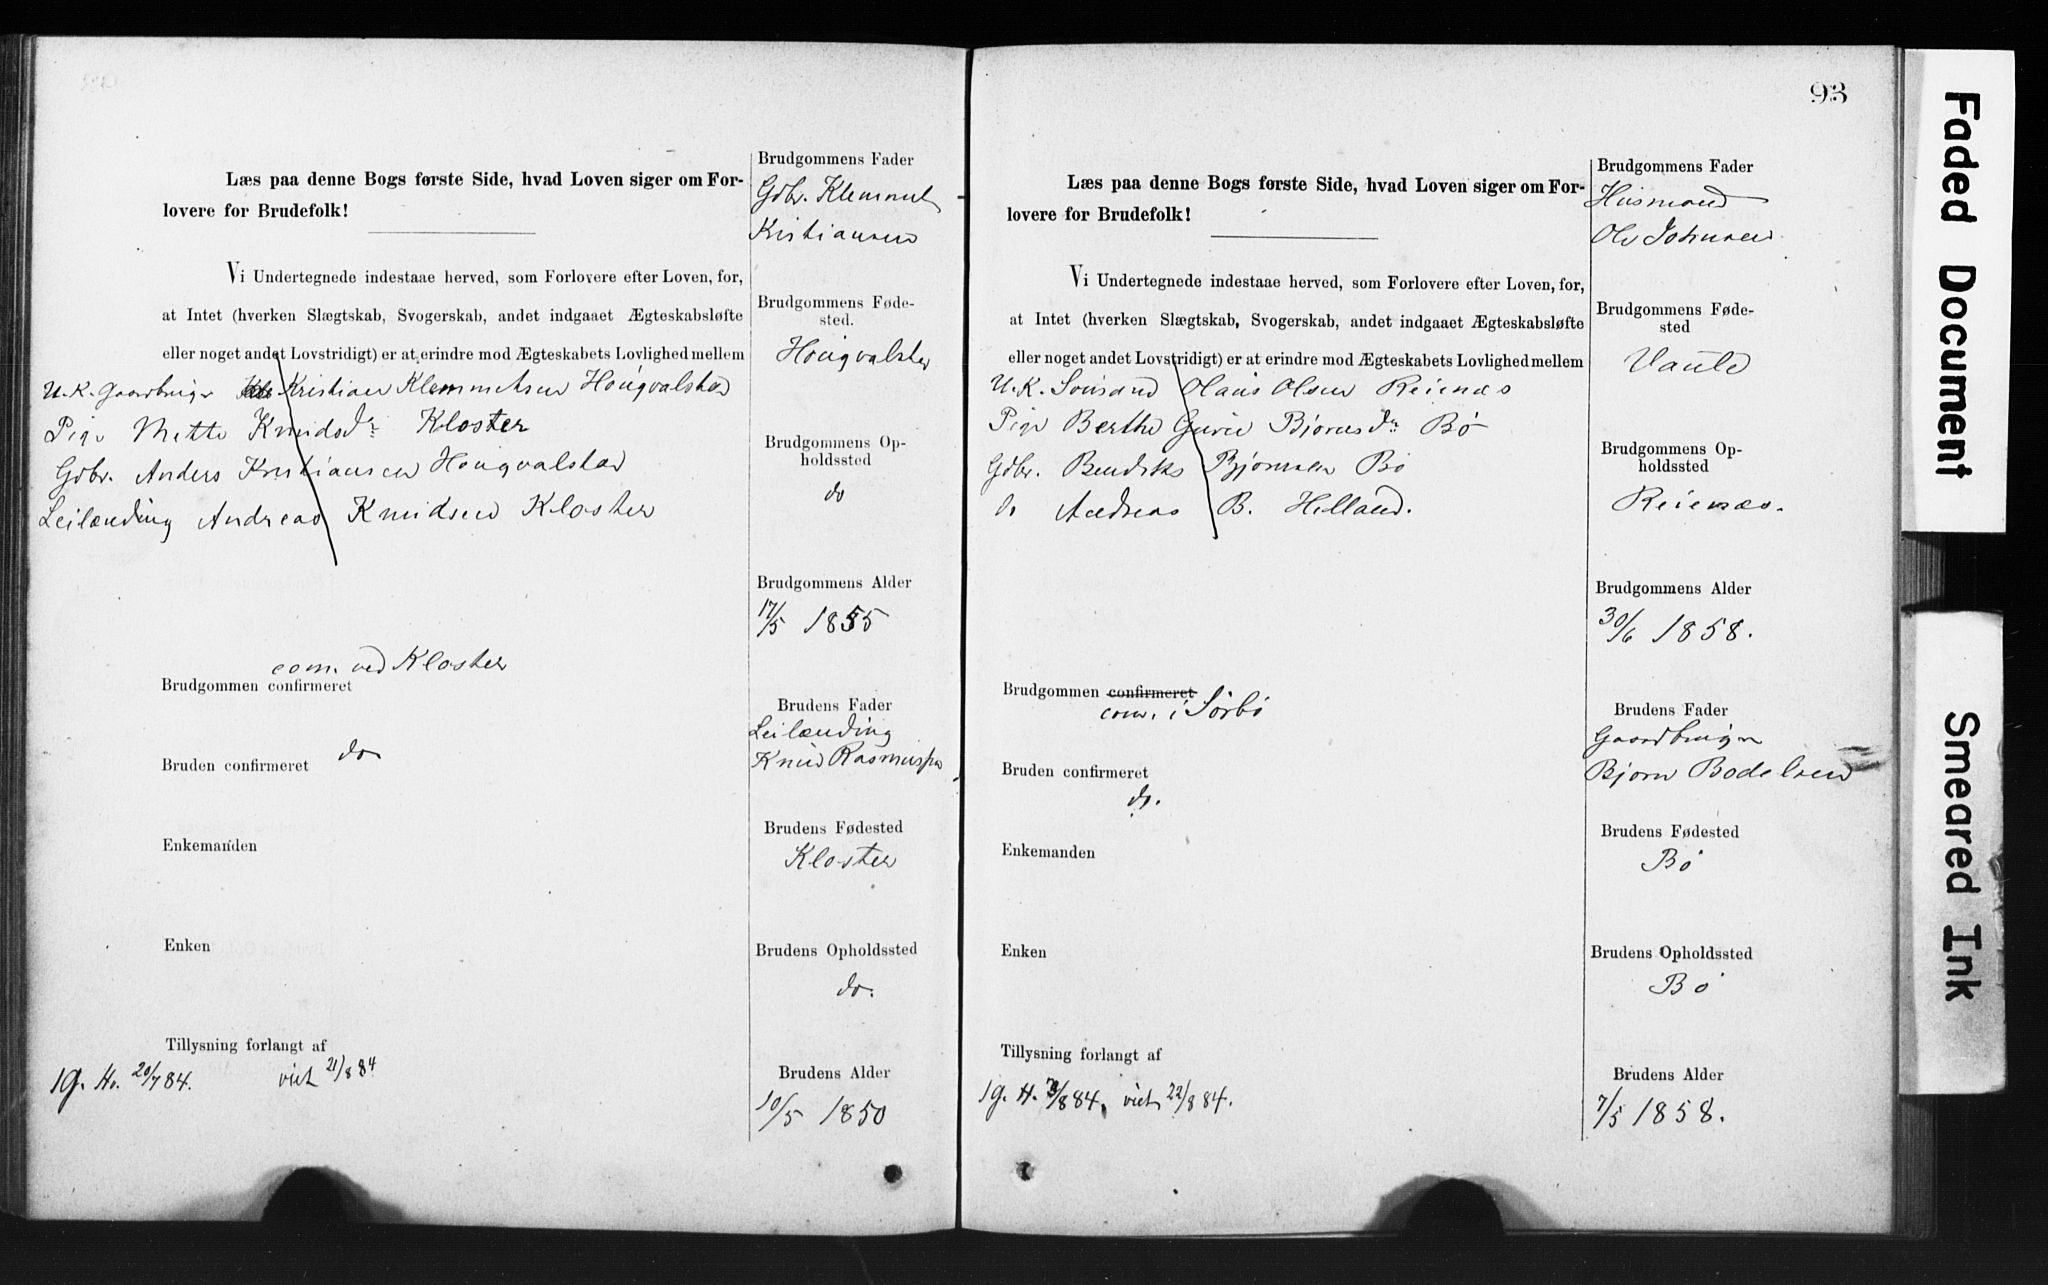 Læs paa denne Bogs første Side, hvad Loven siger om For-
lovere for Brudefolk!
Vi Undertegnede indestaae herved, som Forlovere efter Loven, for,
at Intet (hverken Slægtskab, Svogerskab, andet indgaaet Ægteskabsløfte
eller noget andet Lovstridigt) er at erindre mod Ægteskabets Lovlighed mellem
U. K. Gaardbruger Kristian Klemmetsen Hougvalstad
Pige Mette Knudsdr Kloster
Gdbr. Anders Kristiansen Hougvalstad
Leilænding Andreas Knudsen Kloster
com. ved Kloster
Brudgommen confirmeret
do
Bruden confirmeret
Enkemanden
Enken
Tillysning forlangt af
1 G. H. 20/7 84. viet 21/8 84
Brudgommens Fader
Gdbr. Klemmet
Kristiansen
Brudgommens Føde-
sted.
Hougvalstad
Brudgommens Op-
holdssted
do
Brudgommens Alder
17/5 1855
Brudens Fader
Leilænding
Knud Rasmussen
Brudens Fødested
Kloster
Brudens Opholdssted
do.
Brudens Alder
10/5 1850
93
Læs paa denne Bogs første Side, hvad Loven siger om For-
lovere for Brudefolk!
Vi Undertegnede indestaae herved, som Forlovere efter Loven, for,
at Intet (hverken Slægtskab, Svogerskab, andet indgaaet Ægteskabsløfte
eller noget andet Lovstridigt) er at erindre mod Ægteskabets Lovlighed mellem
U. K. Sømand Olaus Olsen Reienæs
Pige Berthe Gurie Bjørnsdr Bø
Gdbr. Bendiks Bjørnsen Bø
do Andreas B. Helland.
Brudgommen confirmeret
com. i Sørbø
Bruden confirmeret
do.
Enkemanden
Enken
Tillysning forlangt af
1 G. H. 3/8 84. viet 22/8 84.
Brudgommens Fader
Husmand
Ole Johnsen
Brudgommens Føde-
sted
Vaule
Brudgommens Op-
holdssted
Reienæs.
Brudgommens Alder
30/6 1858.
Brudens Fader
Gaardbruger
Bjørn Bodelsen
Brudens Fødested
Bø
Brudens Opholdssted
Bø
Brudens Alder
7/5 1858.
Faded Document
Smeared Ink